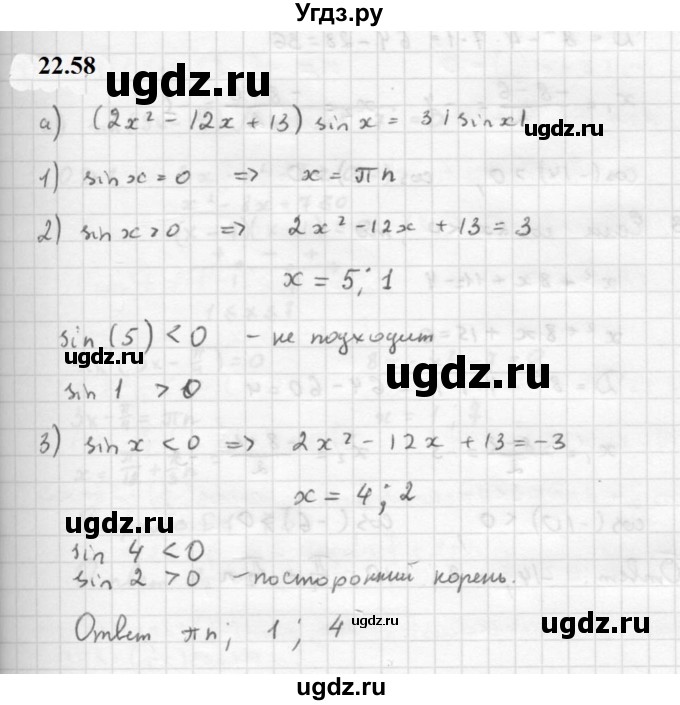 Угдз.ру
22.58
ugdz.ru
а) (2x² - 12x + 13) sin x = 3|sinx|
ugdz.ru
1) sin x = 0 => x = πn
2) sin x > 0 => 2x² - 12x + 13 = 3
ugdz.ru
x = 5; 1
sin(5) < 0 - не подходит
ugdz.ru
sin 1 > 0
3) sin x < 0 => 2x² - 12x + 13 = -3
x = 4; 2
ugdz.ru
sin 4 < 0
sin 2 > 0 - посторонний корень.
ugdz.ru
Ответ πn; 1; 4
ugdz.ru
ugdz.ru